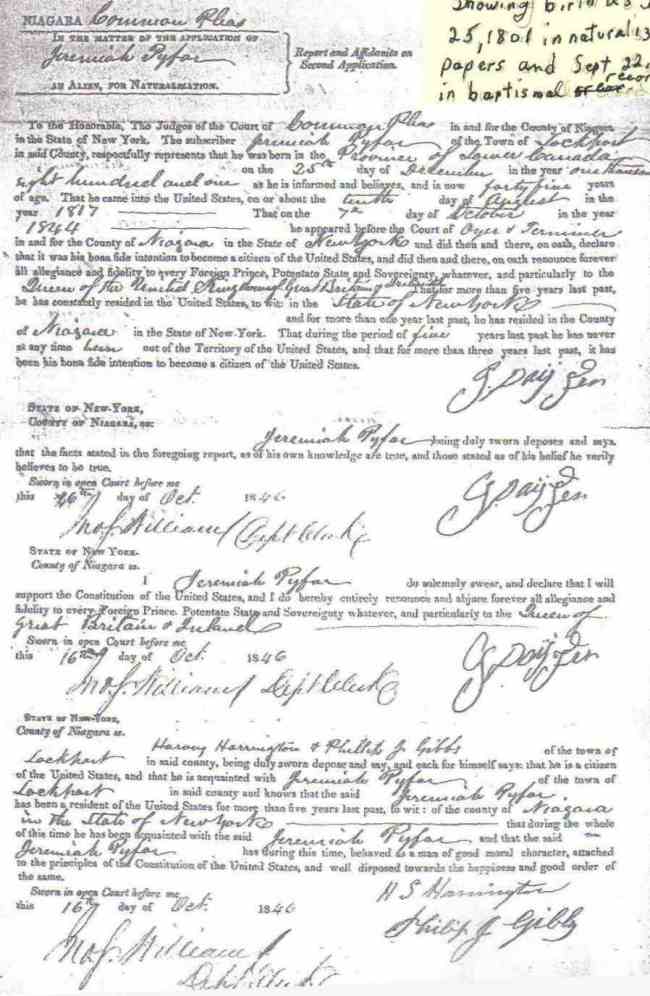 NIAGARA Common Pleas
IN THE MATTER OF THE APPLICATION OF
Jeremiah Pyfar
AN ALIEN, FOR NATURALIZATION.
Report and Affidavits on
Second Application.
showing birth as
25, 1801 in
papers and Sept 22,
in baptismal
To the Honorable, The Judges of the Court of Common Pleas in and for the County of Niagara
in the State of New York. The subscriber Jeremiah Pyfar of the Town of Lockport
in said County, respectfully represents that he was born in the Province of Lower Canada
on the 25th day of December in the year one thousand
eight hundred and one as he is informed and believes, and is now forty five years
of age. That he came into the United States, on or about the tenth day of August in the
year 1817 That on the 7th day of October in the year
1844 he appeared before the Court of Oyer & Terminer
in and for the County of Niagara in the State of New York and did then and there, on oath, declare
that it was his bona fide intention to become a citizen of the United States, and did then and there, on oath renounce forever
all allegiance and fidelity to every Foreign Prince, Potentate State and Sovereignty, whatever, and particularly to the
Queen of the United Kingdom of Great Britain & Ireland That for more than five years last past,
he has constantly resided in the United States, to wit: in the State of New York
and for more than one year last past, he has resided in the County
of Niagara in the State of New-York. That during the period of five years last past he has never
at any time been out of the Territory of the United States, and that for more than three years last past, it has
been his bona fide intention to become a citizen of the United States.
STATE OF NEW-YORK,
COUNTY OF NIAGARA, ss:
Jeremiah Pyfar being duly sworn deposes and says,
that the facts stated in the foregoing report, as of his own knowledge are true, and those stated as of his belief he verily
believes to be true.
Sworn in open Court before me
this 16th day of Oct. 1846
Mo J. William Dept Clerk
STATE OF NEW YORK.
County of Niagara ss.
I Jeremiah Pyfar do solemnly swear, and declare that I will
support the Constitution of the United States, and I do hereby entirely renounce and abjure forever all allegiance and
fidelity to every Foreign Prince, Potentate State and Sovereignty whatever, and particularly to the Queen of
Great Britain & Ireland
Sworn in open Court before me
this 16th day of Oct. 1846
Mo J. William Dept Clerk
STATE OF NEW-YORK,
County of Niagara ss.
Harvey Harrington & Phillip J Gibbs of the town of
Lockport in said county, being duly sworn depose and say, and each for himself says: that he is a citizen
of the United States, and that he is acquainted with Jeremiah Pyfar, of the town of
Lockport in said county and knows that the said Jeremiah Pyfar.
has been a resident of the United States for more than five years last past, to wit: of the county of Niagara
in the State of New York that during the whole
of this time he has been acquainted with the said Jeremiah Pyfar and that the said
Jeremiah Pyfar has during this time, behaved as a man of good moral character, attached
to the principles of the Constitution of the United States, and well disposed towards the happiness and good order of
the same.
Sworn in open Court before me
this 16th day of Oct. 1846
H S Harrington
Philip J Gibbs
Mo J. William
Dept Clerk